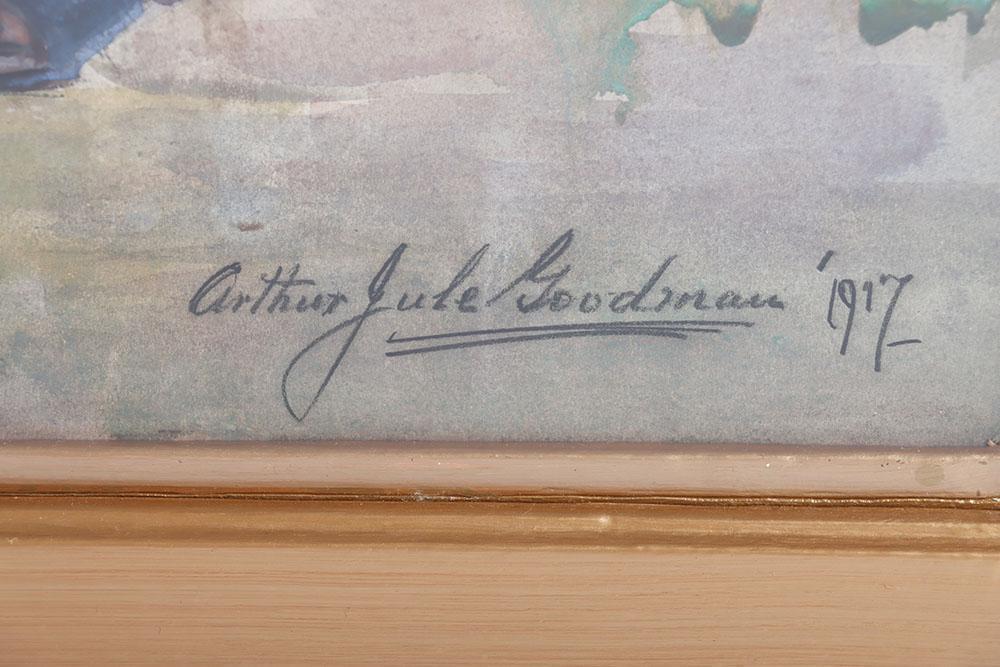 Arthur Jule Goodman '1917